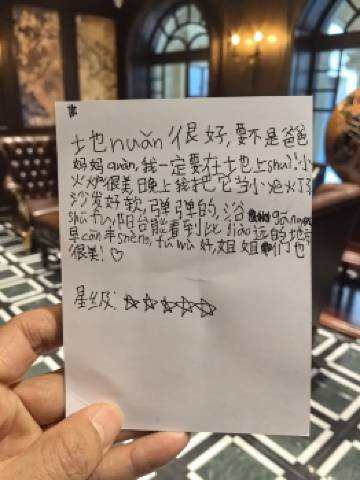 土也nuǎn很好,要不是爸爸
妈妈quàn,我一定要在土也上shuì!小
火炉很美日晚上我把它当小火
沙发好软,弹弹的,浴
shūfu阳台能看到比jiào远的地
早cān丰shèng,fúwù好,姐姐们也
很美!♡
星级:☆☆☆☆☆